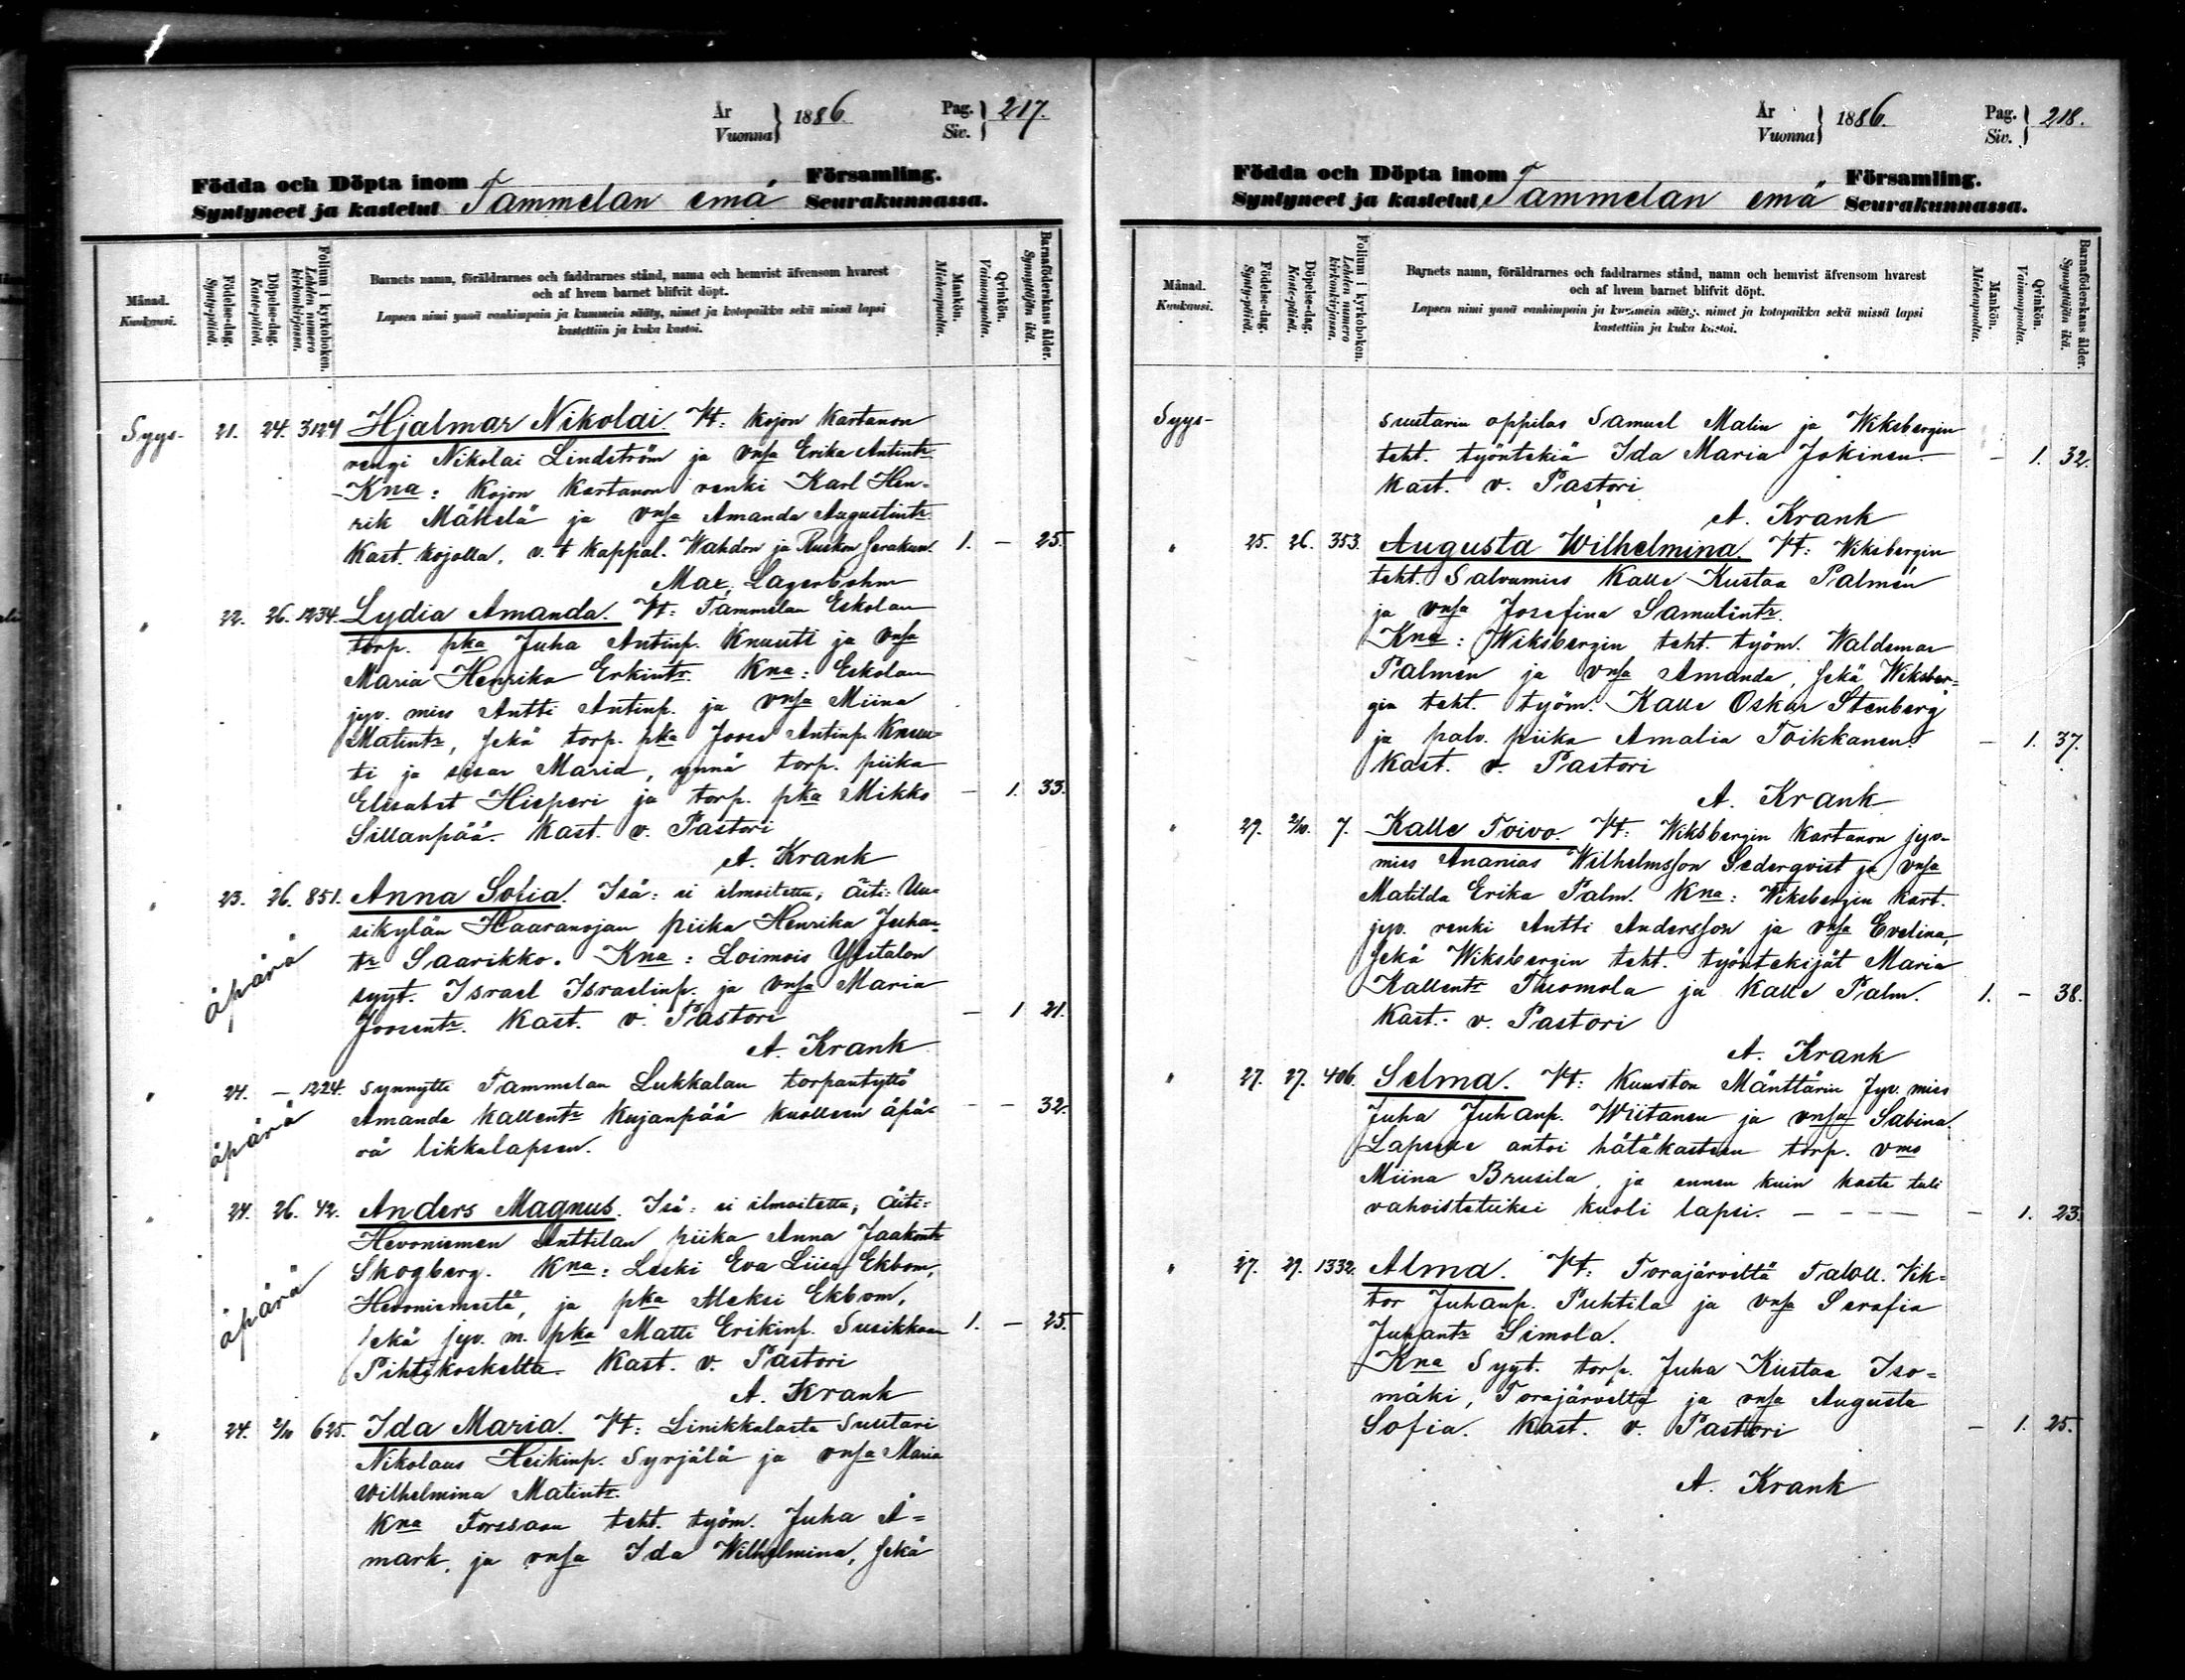 År
Vuonna } 1886.
Pag.
Siv. } 217.
Födda och Döpta inom
Syntyneet ja kastetut Tammelan emä
Församling.
Seurakunnassa.
Månad.
Kuukausi.
Födelse-dag.
Synty-päivä.
Döpelse-dag.
Kaste-päivä.
Folium i kyrkoboken.
Lehden numero kirkonkirjassa.
Barnets namn, föräldrarnes och faddrarnes stånd, namn och hemvist äfvensom hvarest
och af hvem barnet blifvit döpt.
Lapsen nimi ynnä vanhimpain ja kummein sääty, nimet ja kotopaikka sekä missä lapsi
kastettiin ja kuka kastoi.
Mankön.
Miehenpuolta.
Qvinkön.
Vaimonpuolta.
Barnaföderskans ålder.
Synnyttäjän ikä.
Syys- 21. 24. 3124 Hjalmar Nikolai. Vt: Kojon Kartanon
rengi Nikolai Lindström ja vnsa Erika Antintr.
Kna: Kojon Kartanon renki Karl Hen-
rik Mäkelä ja vnsa Amanda Augustintr.
Kast. Kojolla, v. t Kappal. Wahdon ja Ruskon Serakun. 1. - 25.
Max. Lagerbohm
" 22. 26. 1234. Lydia Amanda. Vt: Tammelan Eskolan
torp. pka Juha Antinp. Knuuti ja vnsa
Maria Henrika Erkintr. Kna: Eskolan
jyv. mies Antti Antinp. ja vnsa Miina
Matintr, sekä torp. pka Joose Antinp. Knuu-
ti ja sisar Maria, ynnä torp. piika
Elisabet Hisperi ja torp. pka Mikko - 1. 33.
Sillanpää. Kast. v. Pastori
A. Krank
" 23. 26. 851. Anna Sofia. Isä: ei ilmoitettu; Äiti: Uu-
sikylän Haaranojan piika Henrika Juhan-
äpärä tr Saarikko. Kna: Loimois Ylitalon
syyt. Israel Israelinp. ja vnsa Maria
Joosentr. Kast. v. Pastori - 1 21.
A. Krank
" 24. - 1224. synnytti Tammelan Lukkalan torpantyttö
äpärä Amanda Kallentr Kujanpää kuolleen äpä- - - 32.
rä tikkalapsen.
" 24. 26. 42. Anders Magnus. Isä: ei ilmoitettu; Äiti:
Hevoniemen Anttilan piika Anna Jaakontr
äpärä Skogberg. Kna: Leski Eva Liisa Ekbom,
Hevoniemestä, ja pka Aleksi Ekbom,
sekä jyv. m. pka Matti Erikinp. Susikkaan 1. - 25.
Pihtikoskelta. Kast. v. Pastori
A. Krank
" 24. 2/10 625. Ida Maria. Vt: Linikkalasta Suutari
Nikolaus Heikinp. Syrjälä ja vnsa Maria
Wilhelmina Matintr.
Kna Forssaan teht. työm. Juha Å-
mark, ja vnsa Ida Wilhelmina, sekä
År
Vuonna } 1886.
Pag.
Siv. } 218.
Födda och Döpta inom
Syntyneet ja kastetut Tammelan emä
Församling.
Seurakunnassa.
Månad.
Kuukausi.
Födelse-dag.
Synty-päivä.
Döpelse-dag.
Kaste-päivä.
Folium i kyrkoboken.
Lehden numero kirkonkirjassa.
Barnets namn, föräldrarnes och faddrarnes stånd, namn och hemvist äfvensom hvarest
och af hvem barnet blifvit döpt.
Lapsen nimi ynnä vanhimpain ja kummein sääty, nimet ja kotopaikka sekä missä lapsi
kastettiin ja kuka kastoi.
Mankön.
Miehenpuolta.
Qvinkön.
Vaimonpuolta.
Barnaföderskans ålder.
Synnyttäjän ikä.
Syys- suutarin oppilas Samuel Malin ja Wiksbergin
teht. työntekiä Ida Maria Jokinen. - 1. 32.
Kast. v. Pastori
A. Krank
" 25. 26. 353. Augusta Wilhelmina. Vt: Wiksbergin
teht. Salvumies Kalle Kustaa Palmén
ja vnsa Josefina Samulintr.
Kna: Wiksbergin teht. työm. Waldemar
Palmén ja vnsa Amanda, sekä Wiksber-
gin teht. työm. Kalle Oskar Stenberg
ja palv. piika Amalia Toikkanen. - 1. 37.
Kast. v. Pastori
A. Krank
" 29. 2/10. 7. Kalle Toivo. Vt: Wiksbergin Kartanon jyv-
mies Ananias Wilhelmsson Sederqvist ja vnsa
Matilda Erika Palm. Kna: Wiksbergin Kart.
jyv. renki Antti Andersson ja vnsa Evelina,
sekä Wiksbergin teht. työntekijät Maria
Kallentr Tuomola ja Kalle Palm. 1. - 38.
Kast. v. Pastori
A. Krank
" 27. 27. 406. Selma. Vt: Kuuston Mänttärin Jyv. mies
Juha Juhanp. Wiitanen ja vnsa Sabina.
Lapselle antoi hätäkasteen torp. vmo
Miina Brusila, ja ennen kuin kaste tuli
vahvistetuiksi kuoli lapsi. - - - - - 1. 23.
" 27. 29. 1332. Alma. Vt: Torajärveltä Taloll. Vik-
tor Juhanp. Puhtila ja vnsa Serafia
Juhantr Simola.
Kna Syyt. torp. Juha Kustaa Iso-
mäki, Torajärveltä ja vnsa Augusta
Sofia. Kast. v. Pastori - 1. 25.
A. Krank